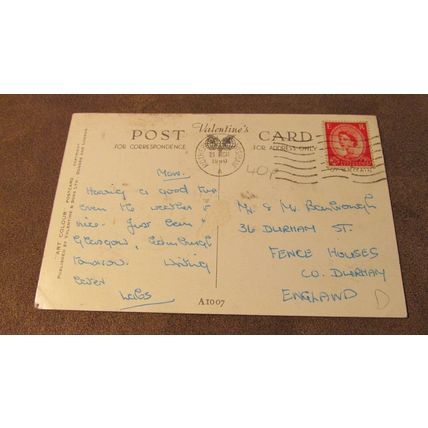 Valentine's
POST CARD
FOR CORRESPONDENCE
FOR ADDRESS ONLY
1960
A
E R
40p
Mon.
Having a good
even the weather is
nice. Just been
Glasgow, Edinburgh
tomorrow. Writing
later
Mr. & Mrs
36 DURHAM ST.
FENCE HOUSES
CO. DURHAM
ENGLAND
D
A1007
"ART COLOUR" POSTCARD
PUBLISHED BY VALENTINE & SONS LTD. DUNDEE AND LONDON
COPYRIGHT